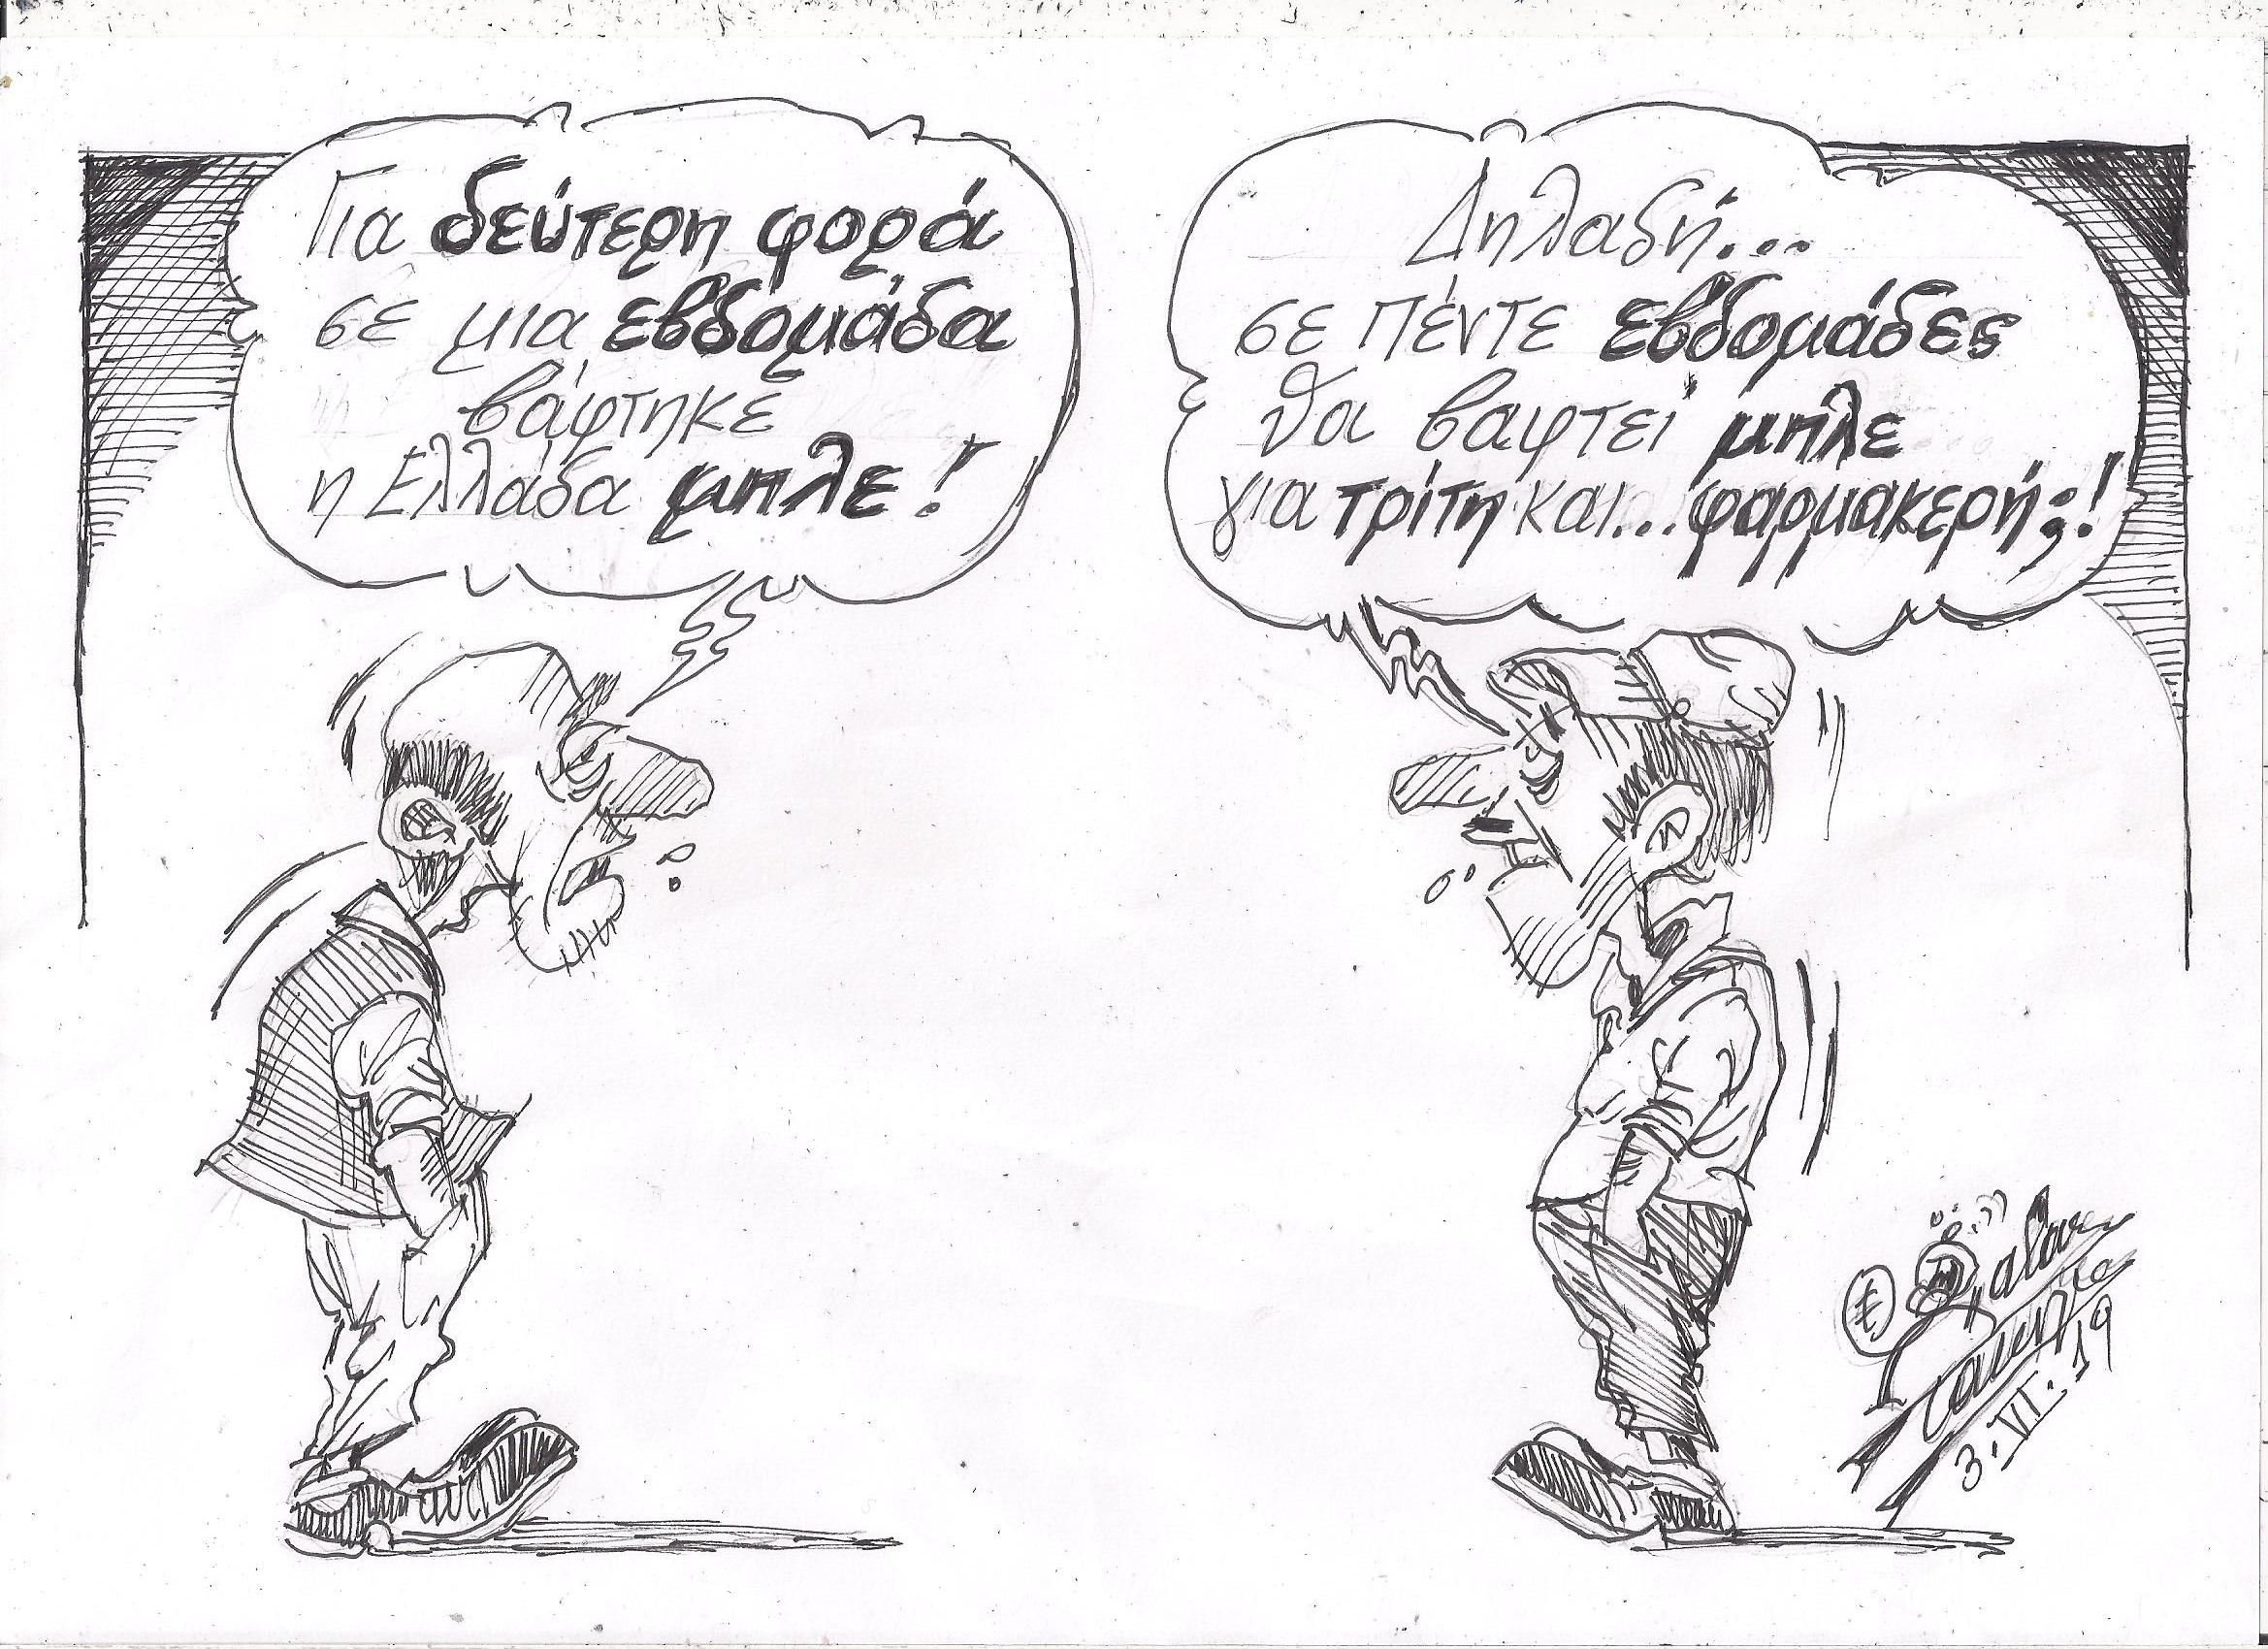 Για δεύτερη φορά
σε μια εβδομάδα
βάφτηκε
η Ελλάδα μπλε!
Δηλαδή...
σε πέντε εβδομάδες
θα βαφτεί μπλε
για τρίτη και...φαρμακερή;!
3.VI.19